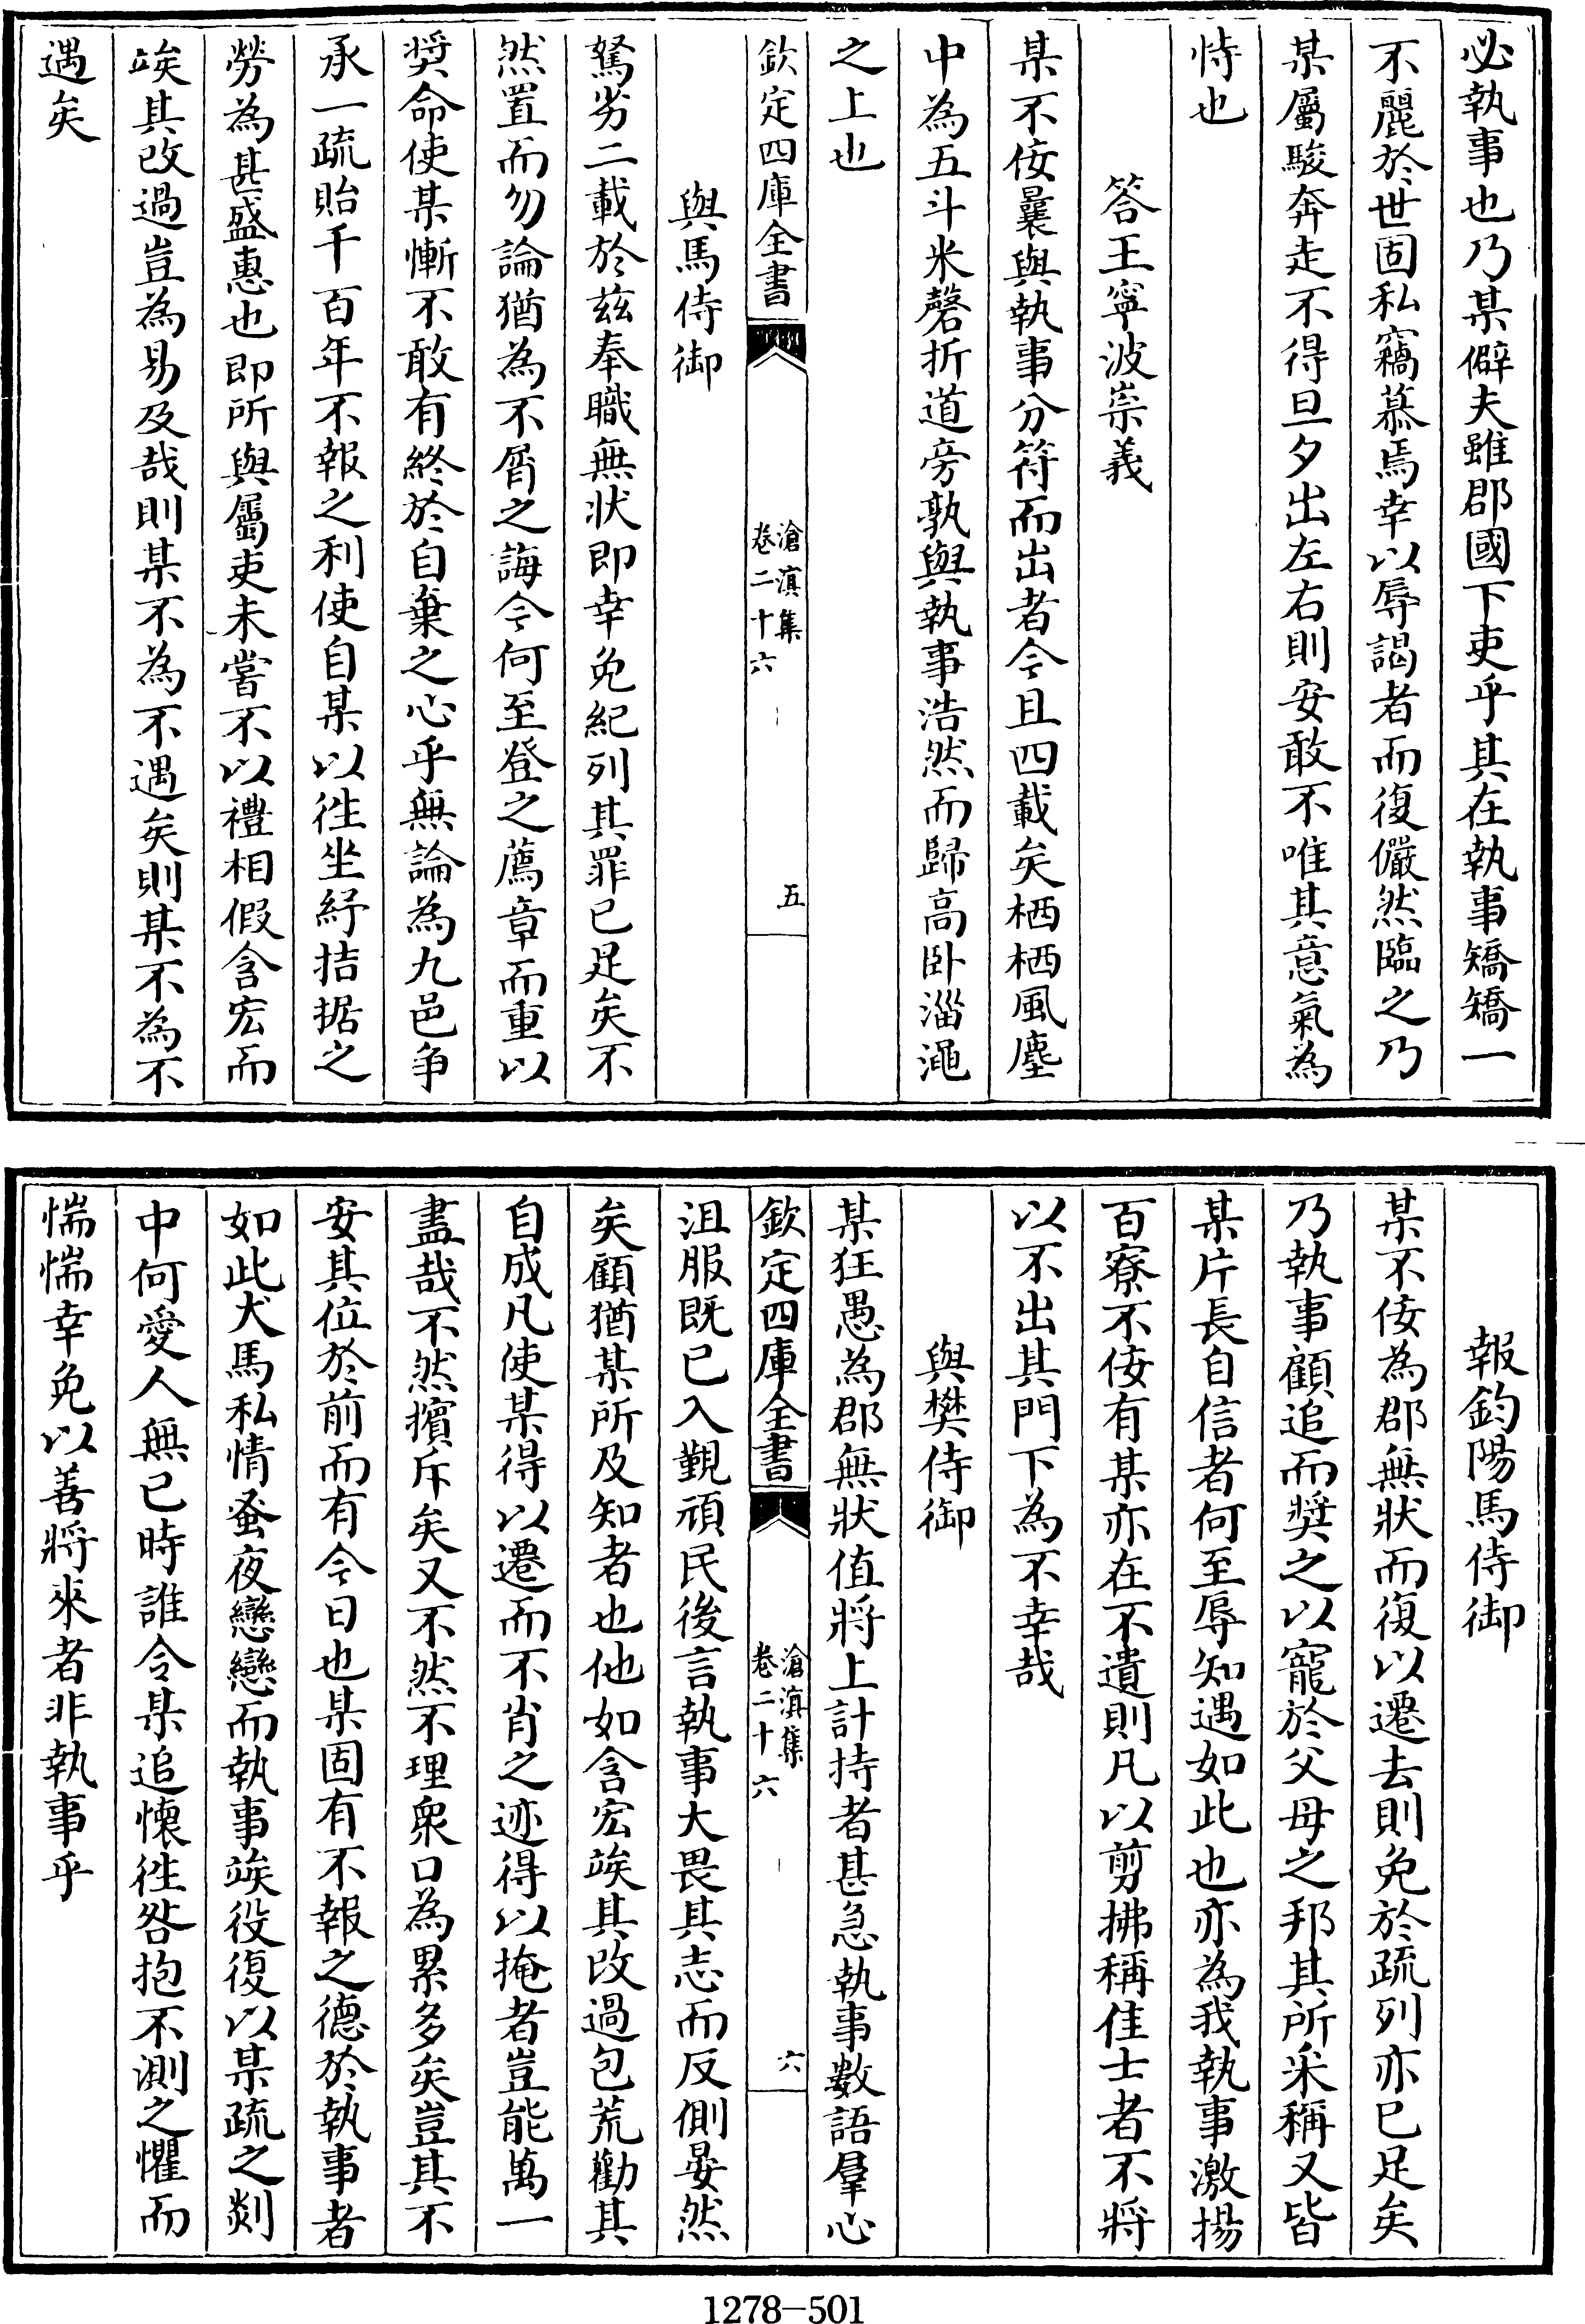 必執事也乃某僻夫雖郡國下吏乎其在執事矯矯一
不麗於世固私竊慕焉幸以辱謁者而復儼然臨之乃
某屬駿奔走不得旦夕出左右則安敢不唯其意氣為
恃也
答王寧波崇義
某不佞曩與執事分符而出者今且四載矣栖栖風塵
中為五斗米磬折道旁孰與執事浩然而歸高卧淄澠
之上也
欽定四庫全書
滄溟集
卷二十六
五
與馬侍御
駑劣二載於兹奉職無狀即幸免紀列其罪已足矣不
然置而勿論猶為不屑之誨今何至登之薦章而重以
奨命使某慚不敢有終於自棄之心乎無論為九邑争
承一疏貽千百年不報之利使自某以徃坐紓拮据之
勞為甚盛惠也即所與屬吏未嘗不以禮相假含宏而
竢其改過豈為易及哉則某不為不遇矣則某不為不
遇矣
報鈞陽馬侍御
某不佞為郡無狀而復以遷去則免於疏列亦已足矣
乃執事顧追而奨之以寵於父母之邦其所采稱又皆
某片長自信者何至辱知遇如此也亦為我執事激揚
百寮不佞有某亦在不遺則凡以剪拂稱佳士者不將
以不出其門下為不幸哉
與樊侍御
某狂愚為郡無狀值將上計持者甚急執事數語羣心
欽定四庫全書
滄溟集
卷二十六
六
沮服既已入覲頑民後言執事大畏其志而反側晏然
矣顧猶某所及知者也他如含宏竢其改過包荒勸其
自成凡使某得以遷而不肖之迹得以掩者豈能萬一
盡哉不然擯斥矣又不然不理衆口為累多矣豈其不
安其位於前而有今日也某固有不報之德於執事者
如此犬馬私情蚤夜戀戀而執事竢役復以某疏之剡
中何愛人無已時誰令某追懐徃咎抱不測之懼而
惴惴幸免以善將來者非執事乎
1278—501